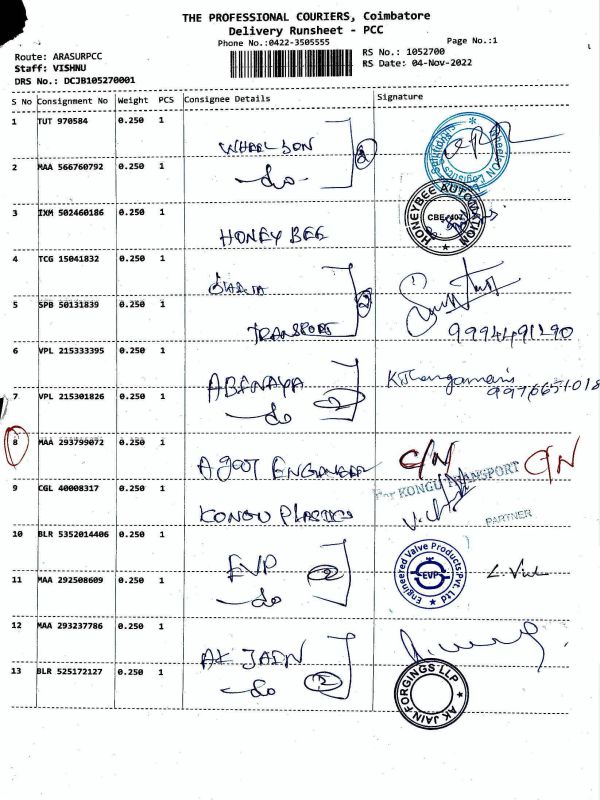 THE PROFESSIONAL COURIERS, Coimbatore
Delivery Runsheet - PCC
Phone No.:0422-3505555
Page No.:1
Route: ARASURPCC
RS No.: 1052700
Staff: VISHNU
RS Date: 04-Nov-2022
DRS No.: DCJB105270001
S No Consignment No Weight PCS Consignee Details Signature
1 TUT 970584 0.250 1
WHEELSON 2
2 MAA 566760792 0.250 1 -do-
WheelsON Logistics
3 IXM 502460186 0.250 1 HONEY BEE
HONEYBEE AUTOMATION CBE-407
4 TCG 15041832 0.250 1
5 SPB 50131839 0.250 1 TRANSPORT 2
9994491190
6 VPL 215333395 0.250 1 ABINAYA
K Thangamani
7 VPL 215301826 0.250 1 -do 2
8 MAA 293799072 0.250 1 C/N C/N
9 CGL 40008317 0.250 1 KONGU PLASTICS
For KONGU TRANSPORT
PARTNER
10 BLR 5352014406 0.250 1 EVP 2
11 MAA 292508609 0.250 1 -do
Engineered Valve Products Pvt. Ltd EVP
12 MAA 293237786 0.250 1 AK JAIN
13 BLR 525172127 0.250 1 -do 2
AK JAIN FORGINGS LLP